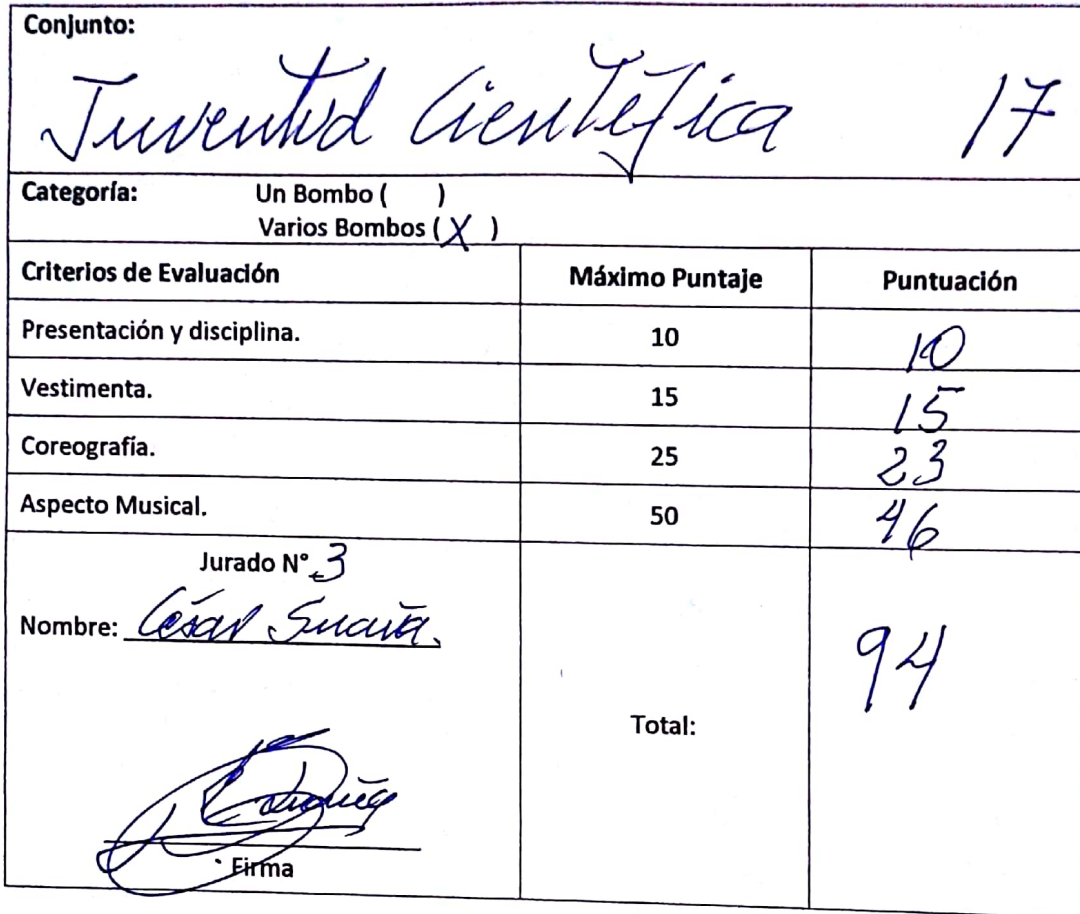 Conjunto:
Juventud Científica 17
Categoría: Un Bombo ( )
Varios Bombos ( X )
Criterios de Evaluación Máximo Puntaje Puntuación
Presentación y disciplina. 10 10
Vestimenta. 15 15
Coreografía. 25 23
Aspecto Musical. 50 46
Jurado N° 3
Nombre: César
Total: 94
Firma